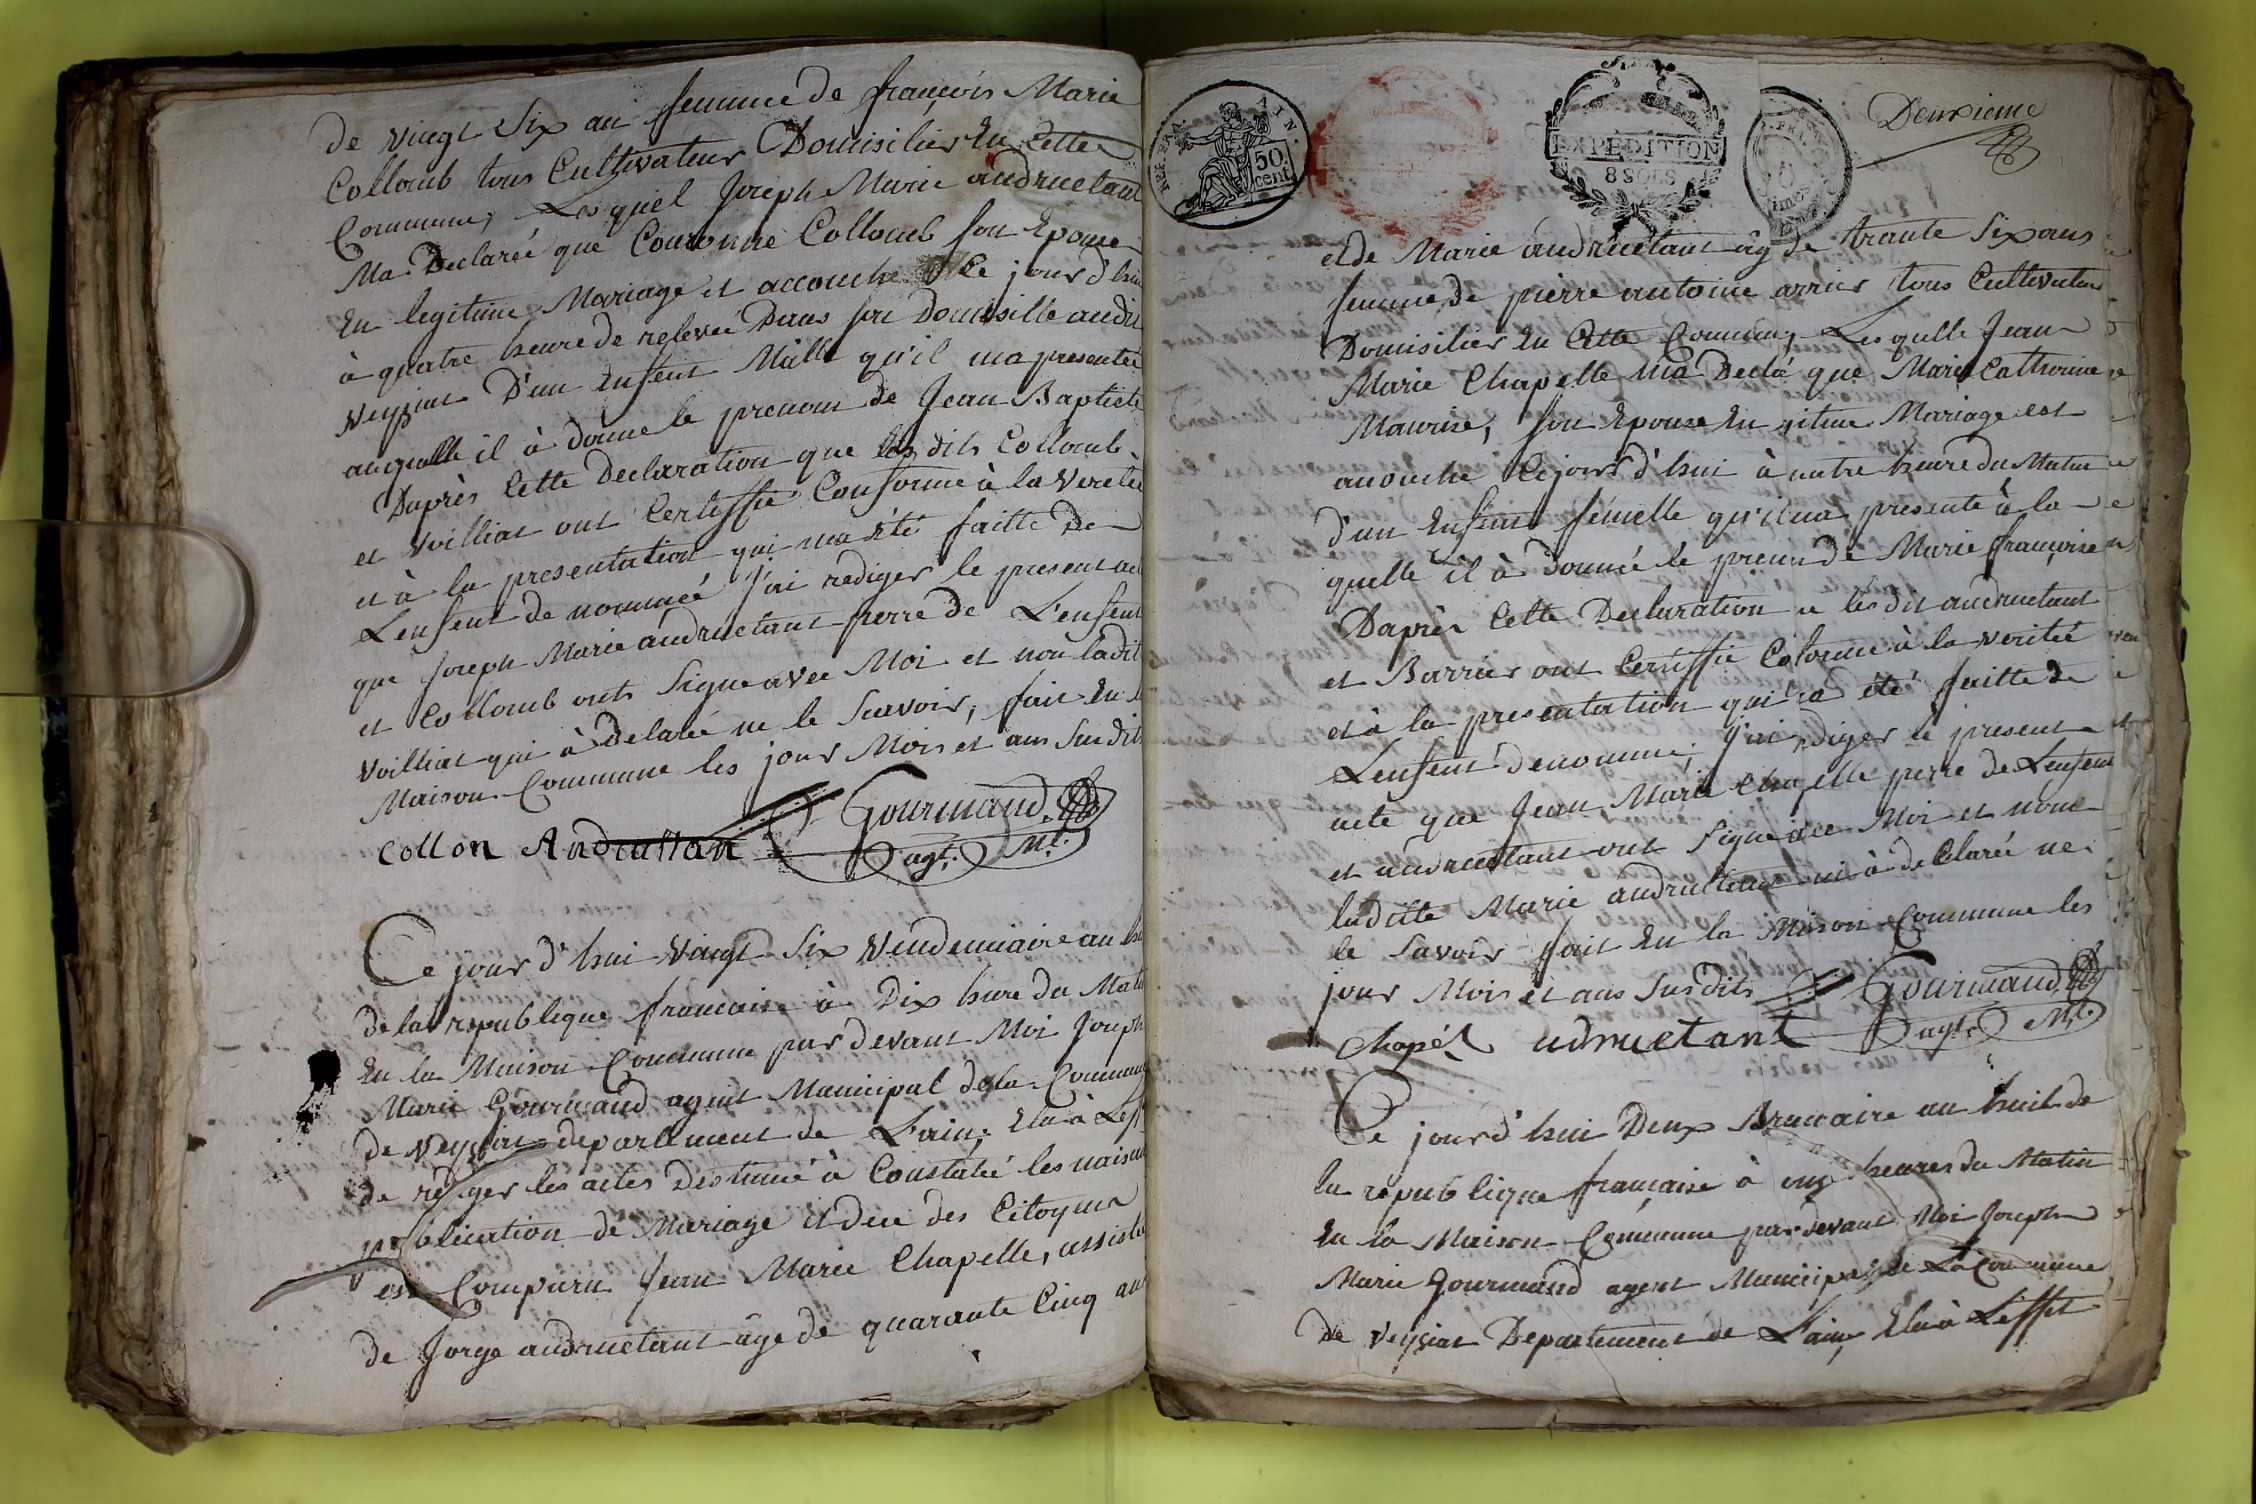 de vingt six an femme de françois Marie
Collomb tous Cultivateur Domisilier En Cette
Commune, Les quel Joseph Marie andruetant
Ma Declareé que Couronne Collomb son Epouse
En legitime Mariage et accouche Ce jour d'hui
à quatre heure de relevée Dans son Domisille audit
Veyziat D'un Enfent Malle qu'il ma presentée
auquelle il à donne le prenom de Jean Baptiste
Daprès Cette Declaration que les dits Collomb
et Voilliat ont Certiffie Conforme à la Veretée
et à la presentation qui ma été faitte De
L'enfent de nommée J'ai rediger le present acte
que Joseph Marie andructant perre de L'enfent
et Collomb onts Signe avec Moi et non ladit
Voilliat qui à Delaré ne le Scavoir, fait En la
Maison Commune les jour Mois et ans Susdit
Gourmand
collon Andruttan agt. Ml.
Ce jour d'hui Vingt Six Vendemiaire an huit
de la republique francaise à Dix hure du Matin
En la Maison Commune par devant Moi Joseph
Marie Gourmand agent Municipal de la Commune
de Veyziat departement de L'ain, Elu à Leffet
de rediger les actes Destinné à Constateé les naisances
publication de Mariage et dece des Citoyens
est Comparu Jean Marie Chapelle, assiste
de Jorge andruetant âge de quarante Cinq ans
REP. FRA. AIN
50 cent.
EXPEDITION
8 SOLS
Deuxieme
et de Marie andruetant âg de trante Six ans
femme de pierre antoine arrier tous Cultivateur
Domisilier En Cette Commun, Les quelle Jean
Marie Chapelle ma Decla que Marie Catherine
Maurise, son Epouse En gitime Mariage est
anouche Ce jour d'hui à uatre heure du Matin
d'un Enfent femelle qu'il ma presente à la
quelle il à donnée le prenom de Marie françoise
Daprès Cette Declaration e les dit andruetant
et Barrier ont Certiffie Coforme à la verité
et à la presentation qui a été faitte de
L'enfent denomme, J'ai diger le present
acte que Jean Marie Chapelle perre de L'enfent
et andruetant ont Signe avec Moi et non
laditte Marie andructant ui à declarée ne
le Savoir fait En la Maison Commune les
jour Mois et ans Susdits Gourmand
Chapél udruetant agt. Ml.
Ce jour d'hui Deux Brumaire an huit de
la republique française à onz heures du Matin
En la Maison Commune par devant Moi Joseph
Marie Gourmand agent Municipal de La Commune
de Veyziat Departement de L'ain, Elu à Leffet